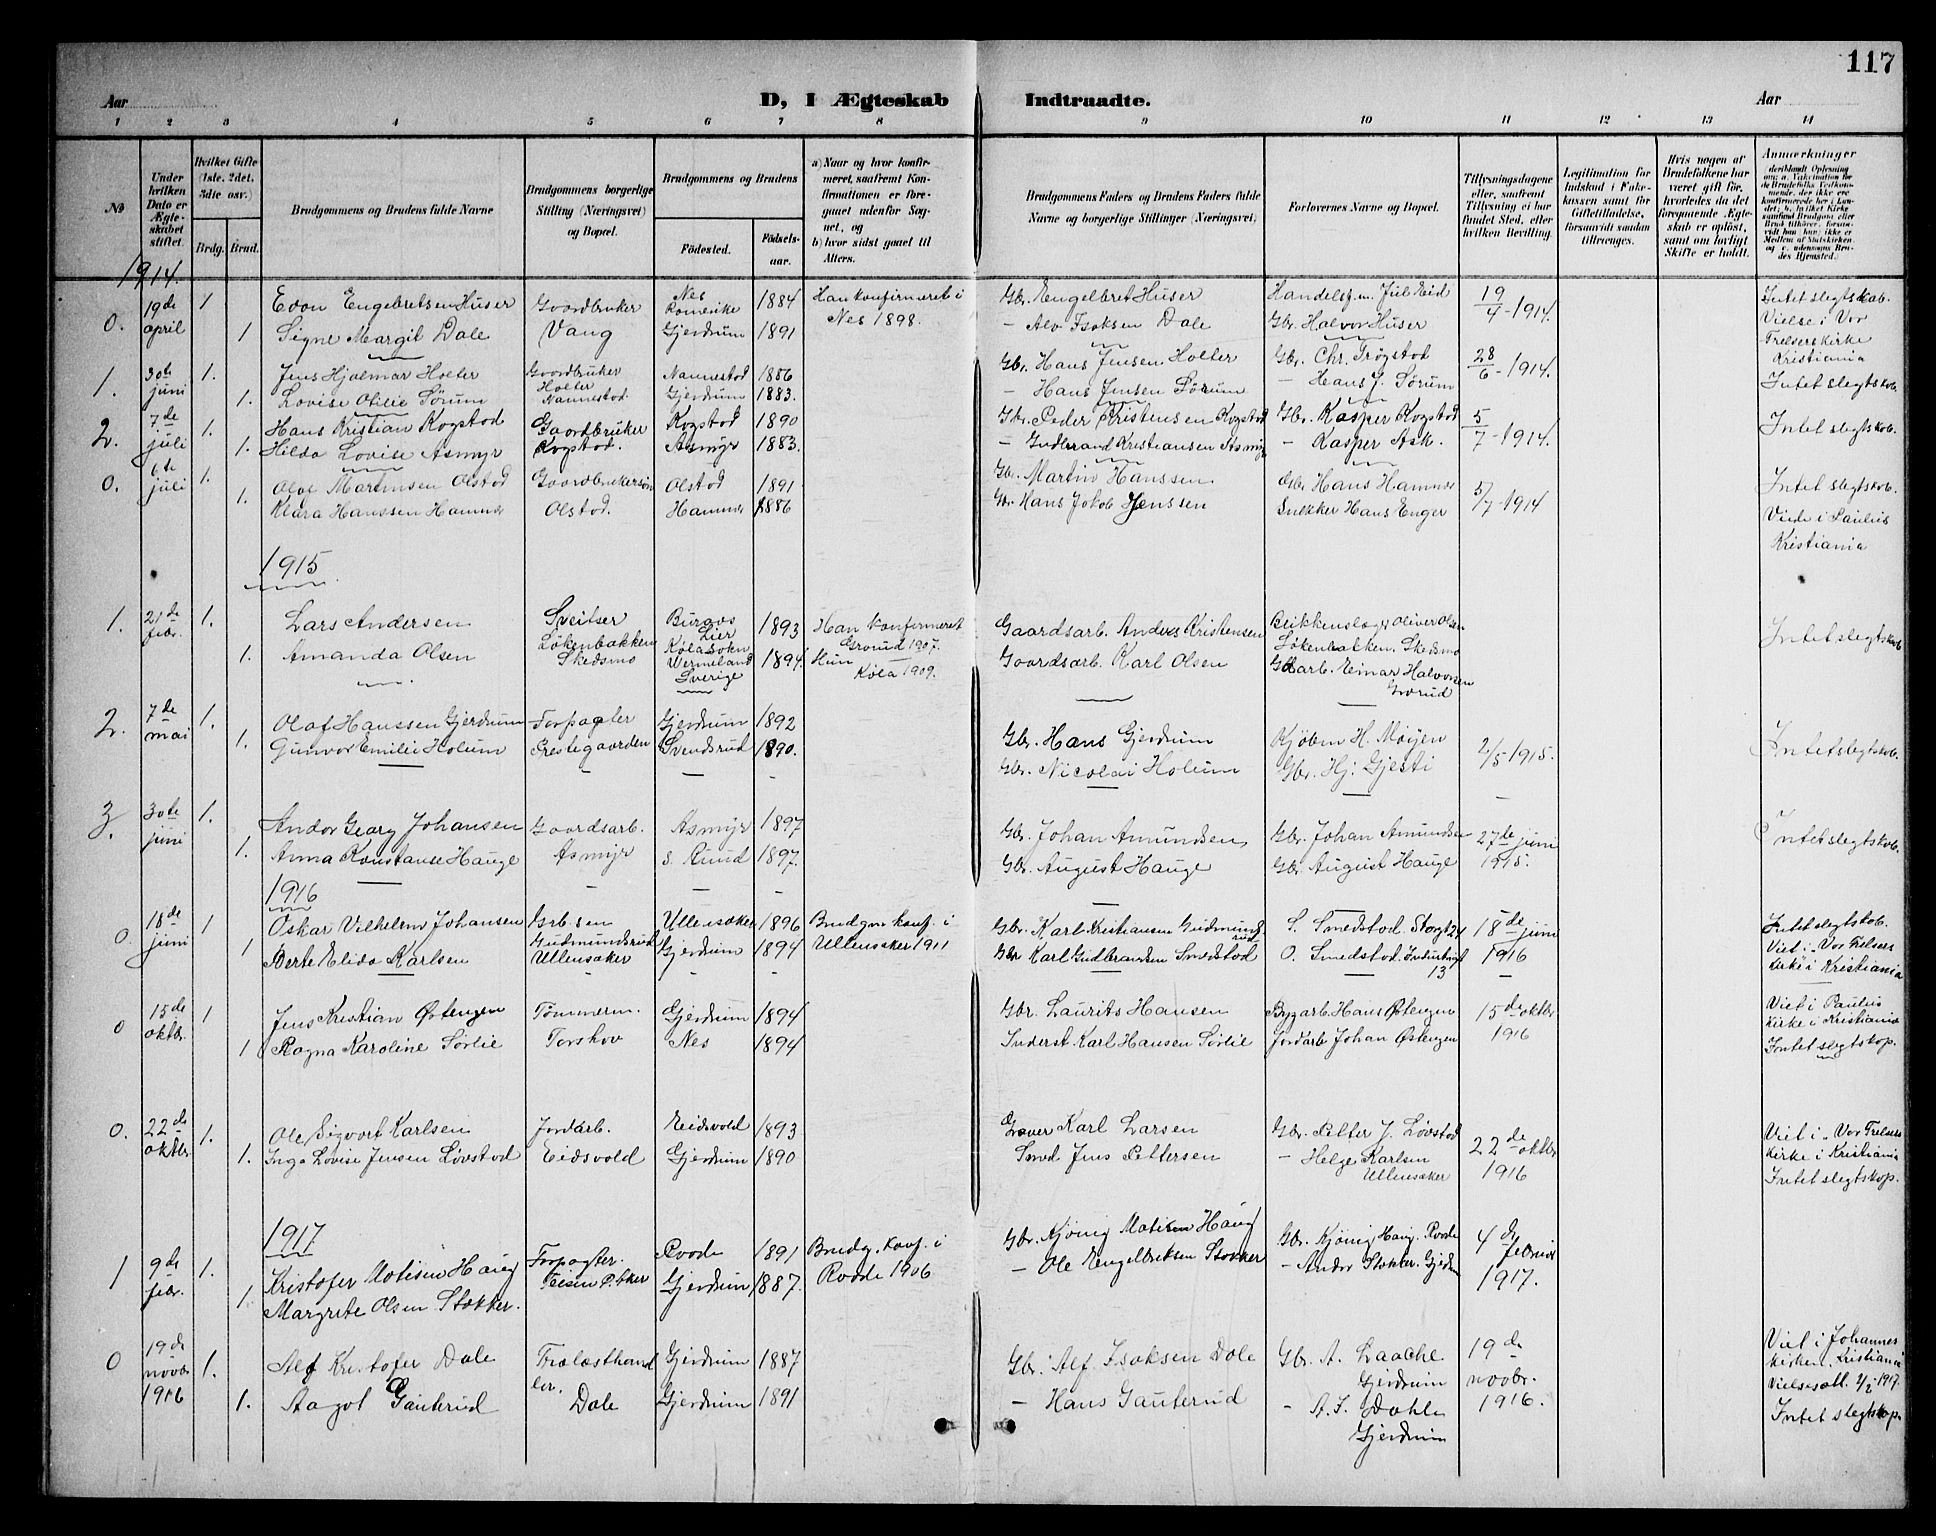 117
Aar
D, I Ægteskab
Indtraadte.
Aar
1 2 3 4 5 6 7 8 9 10 11 12 13 14
No
Under hvilken Dato er Ægteskabet stiftet.
Hvilket Gifte (1ste, 2det, 3die osv.)
Brdg. Brud.
Brudgommens og Brudens fulde Navne
Brudgommens borgerlige Stilling (Næringsvei) og Bopæl.
Brudgommens og Brudens
Fødested.
Fødsels-aar.
a) Naar og hvor konfirmeret, saafremt Konfirmationen er foregaaet udenfor Sognet, og
b) hvor sidst gaaet til Alters.
Brudgommens Faders og Brudens Faders fulde Navne og borgerlige Stillinger (Næringsvei)
Forlovernes Navne og Bopæl.
Tillysningsdagene eller, saafremt Tillysning ei har fundet Sted, efter hvilken Bevilling.
Legitimation for Indskud i Enkekassen samt for Giftetilladelse, forsaavidt saadan tiltrænges.
Hvis nogen af Brudefolkene har været gift før, hvorledes da det foregaaende Ægteskab er opløst, samt om lovligt Skifte er holdt.
Anmærkninger
1914.
0. 19de april 1 Edon Engebretsen Huser Gaardbruker Nes Romerike 1884 Han konfirmeret i Nes 1898. Gbr. Engelbret Huser Handelsf.m. Jul Eid 19/4-1914. Intet slegtskab.
1 Signe Margit Dale Vang Gjerdrum 1891 - Alv Isaksen Dale Gbr. Halvor Huser Vielse i Vor Frelsers kirke Kristiania
1. 30te juni 1. Jens Hjalmar Holter Gaardbruker Holter Nannestad Nannestad 1886 Gbr. Hans Jensen Holter Gbr. Chr. Trøgstad 28/6-1914. Intet slegtskab.
1. Lovise Otilie Sørum Gjerdrum 1883. - Hans Jensen Sørum - Hans J. Sørum
2. 7de juli 1. Hans Kristian Kogstad Gaardbruker Kogstad. Kogstad 1890 Gbr. Peder Kristensen Kogstad Gbr. Kasper Kogstad 5/7-1914. Intet slegtskab.
1. Hilda Lovise Asmyr Asmyr 1883. - Gudbrand Kristiansen Asmyr - Kasper Ask.
0. 6te juli 1. Olaf Martinsen Olstad Gaardbrukersøn Olstad 1891 Gbr. Martin Hanssen Gbr. Hans Hamner 5/7-1914 Intet slegtskab.
1. Klara Hanssen Hamner Olstad. Hamner 1886 Gbr. Hans Jakob Jenssen Snekker Hans Enger Viede i Paulus Kristiania
1915
1. 21de febr. 1. Lars Andersen Sveitser Løkenbakken Skedsmo Lier 1893 Han konfirmeret Grorud 1907. Gaardsarb. Anders Kristensen Oliver Olsen Løkenbakken. Skedsmo Intet slegtskab
1. Amanda Olsen Köla sokn Vermeland Sverige 1894. Hun Köla 1909. Gaardsarb. Karl Olsen Einar Halvorsen Grorud
2. 7de mai 1. Olaf Hanssen Gjerdrum Forpagter Gjerdrum 1892 Gbr. Hans Gjerdrum Kjøbm H. Moijen 2/5-1915. Intet slegtskab.
1. Gunvor Emilie Holum Prestegaarden Svendsrud 1890. Gbr. Nicolai Holum Gbr. Hj. Gjesti
3. 30te juni 1. Andor Georg Johansen Gaardsarb. Asmyr 1897 Gbr. Johan Amundsen Gbr. Johan Amundsen 27de juni 1915. Intet slegtskab.
1. Anna Konstanse Hauge Asmyr s. Ruud 1897. Gbr. August Hauge Gbr. August Hauge
1916
0. 18de juni 1 Oskar Vilhelm Johansen Grb. sen Gudmundsrud Ullensaker Ullensaker 1896 Brudgm konf. i Ullensaker 1911 Gbr. Karl Kristiansen Gudmundsrud S. Smedstad. Storgt 24 18de juni 1916 Intet slegtskab.
1 Berte Elida Karlsen Gjerdrum 1894 Gbr Karl Gudbrandsen Smedstad O. Smedstad. Industrigt 13 Viet i Vor Frelsers Kirke i Kristiania
0 15de oktbr. 1 Jens Kristian Østengen Tømmerm. Gjerdrum 1894 Gbr. Laurits Hansen Bygarb. Hans Østengen 15de oktbr 1916 Viet i Paulus kirke i Kristiania
1 Ragna Karoline Sørlie Torshov Nes 1894 Inderst Karl Hansen Sørlie Jordarb Johan Østengen Intet slegtskap.
0. 22de oktbr. 1. Ole Sigvart Karlsen Jordarb. Eidsvold 1893 Graver Karl Larsen Gbr. Petter J. Løvstad 22de oktbr 1916 Viet i Vor Frelsers Kirke i Kristiania
1. Inga Lovise Jensen Løvstad Eidsvold Gjerdrum 1890 Smed Jens Pettersen - Helge Karlsen Ullensaker Intet slegtskap.
1917
1 9de febr. 1. Kristofer Matisen Haug Forpagter Rødde 1891 Brudg. konf. i Rødde 1906 Gbr. Kjønig Matisen Haug Gbr. Kjønig Haug. Rødde 4de februar 1917.
1 Margrete Olsen Stokker. Gjerdrum 1887. - Ole Engelbriksen Stokker - Andor Stokker. Gjerdrum
0 19de novbr 1916 1. Alf Kristofer Dale Trælasthandler. Gjerdrum 1887 Gbr. Alf Isaksen Dale Gbr. A. Laache Gjerdrum 19de novbr. 1916. Viet i Johannes kirken, Kristiania Vielsesatt. 2/2-1917.
1. Aagot Gauterud Dale Gjerdrum 1891 - Hans Gauterud - A. I. Dahle Gjerdrum Intet slegtskap.